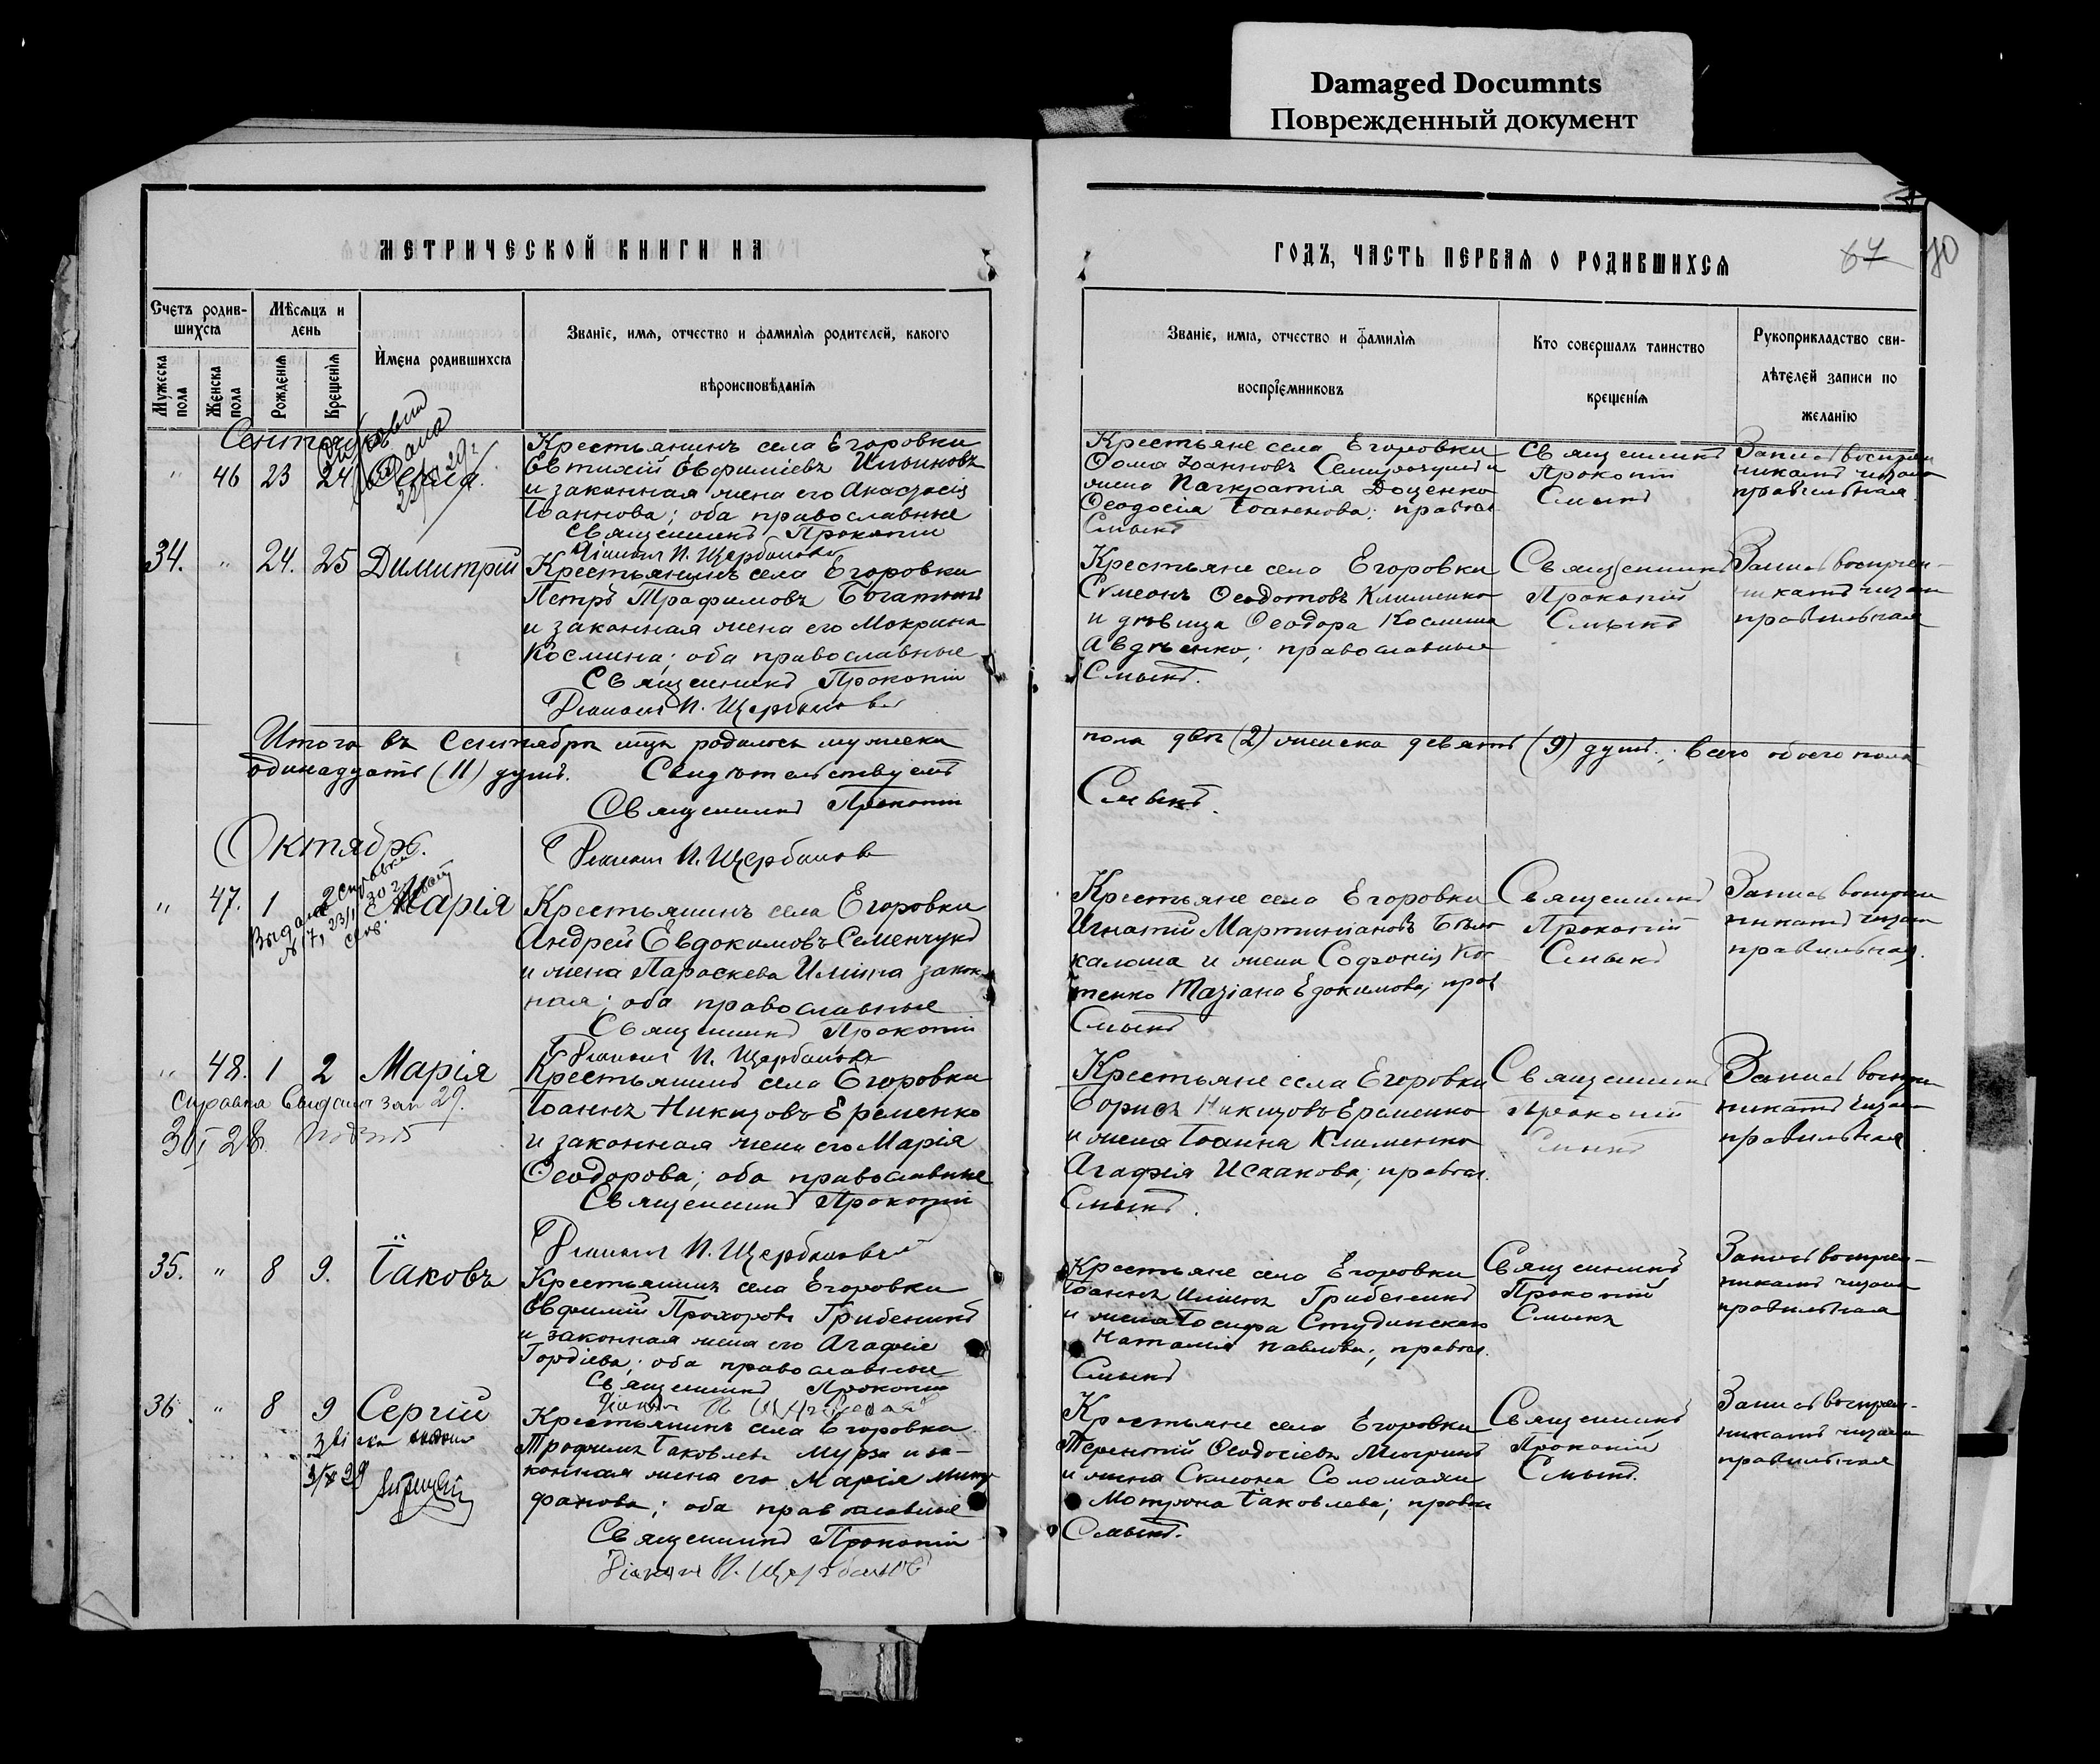 Damaged Documnts
Поврежденный документ
МЕТРИЧЕСКОЙ КНИГИ НА
ГОДЪ, ЧАСТЬ ПЕРВАЯ О РОДИВШИХСЯ
67 70
Счетъ родив-
шихся
Мѣсяцъ и
день
Мужеска
пола
Женска
пола
Рожденія
Крещенія
Имена родившихся
Званіе, имя, отчество и фамилія родителей, какого
вѣроисповѣданія
Званіе, имя, отчество и фамилія
воспріемниковъ
Кто совершалъ таинство
крещенія
Рукоприкладство сви-
дѣтелей записи по
желанію
Сентябрь
" 46 23 24
Крестьянинъ села Егоровки
Евтихій Ильиновъ
и законная жена его Анастасія
Іоаннова; оба православные
Священникъ Прокопій
Діаконъ И. Щербановъ
Крестьяне села Егоровки
Ѳома Іоанновъ и
жена Панкратія Доценко
Ѳеодосія Іоаннова; правосл.
Смыкъ
Священникъ
Прокопій
Смыкъ
Запись воспріем
никамъ читана
правильная
34. " 24. 25 Димитрій
Крестьянинъ села Егоровки
Петръ Трофимовъ Богатый
и законная жена его Макрина
Космина; оба православные
Священникъ Прокопій
Діаконъ И. Щербановъ
Крестьяне села Егоровки
Сѵмеонъ Ѳеодотовъ Клименко
и дѣвица Ѳеодора Космина
Авдѣенко; православные
Смыкъ.
Священникъ
Прокопій
Смыкъ
Запись воспріем-
никамъ читана
правильная
Итого въ Сентябрѣ мцѣ родилось мужеска
пола двѣ (2) женска девять (9) душъ; всего обоего пола
одинадцать (11) душъ. Свидѣтельствуемъ
Священникъ Прокопій
Смыкъ.
Діаконъ И. Щербановъ
Октябрь.
" 47. 1 2 Марія
Крестьянинъ села Егоровки
Андрей Евдокимовъ Семенчукъ
и жена Параскева Иліина закон-
ная; оба православные
Священникъ Прокопій
Діаконъ И. Щербановъ
Крестьяне села Егоровки
Игнатій Мартиніановъ Бѣло
калоша и жена Софонія Кос
тенко Татіана Едокимова; прав
Смыкъ
Священникъ
Прокопій
Смыкъ
Запись воспріем
никамъ читана
правильная.
" 48. 1 2 Марія
Крестьянинъ села Егоровки
Іоаннъ Никитовъ Еременко
и законная жена его Марія
Ѳеодорова; оба православные
Священникъ Прокопій
Діаконъ И. Щербановъ
Крестьяне села Егоровки
Борисъ Никитовъ Еременко
и жена Іоанна Клименко
Агафія Исаакова; правосл.
Смыкъ.
Священникъ
Прокопій
Смыкъ
Запись воспріем
никамъ читана
правильная
35. " 8 9. Іаковъ
Крестьянинъ села Егоровки
Евфимій Прохоровъ Грибеникъ
и законная жена его Агафія
Гордіева; оба православные
Священникъ Прокопій
Крестьяне села Егоровки
Іоаннъ Иліинъ Грибеникъ
и жена Іосифа Студинскаго
Наталія Павлова; правосл.
Смыкъ
Священникъ
Прокопій
Смыкъ
Запись воспріем-
никамъ читана
правильная
36 " 8 9 Сергій
Крестьянинъ села Егоровки
Трофимъ Іаковлевъ Мурза и за-
конная жена его Марія Мит
фанова; оба православные
Священникъ Прокопій
Діаконъ И. Щербановъ
Крестьяне села Егоровки
Терентій Ѳеодосіевъ
и жена Сѵмеона
Мотрона Іаковлева; правосл
Смыкъ.
Священникъ
Прокопій
Смыкъ.
Запись воспріем-
никамъ читана
правильная